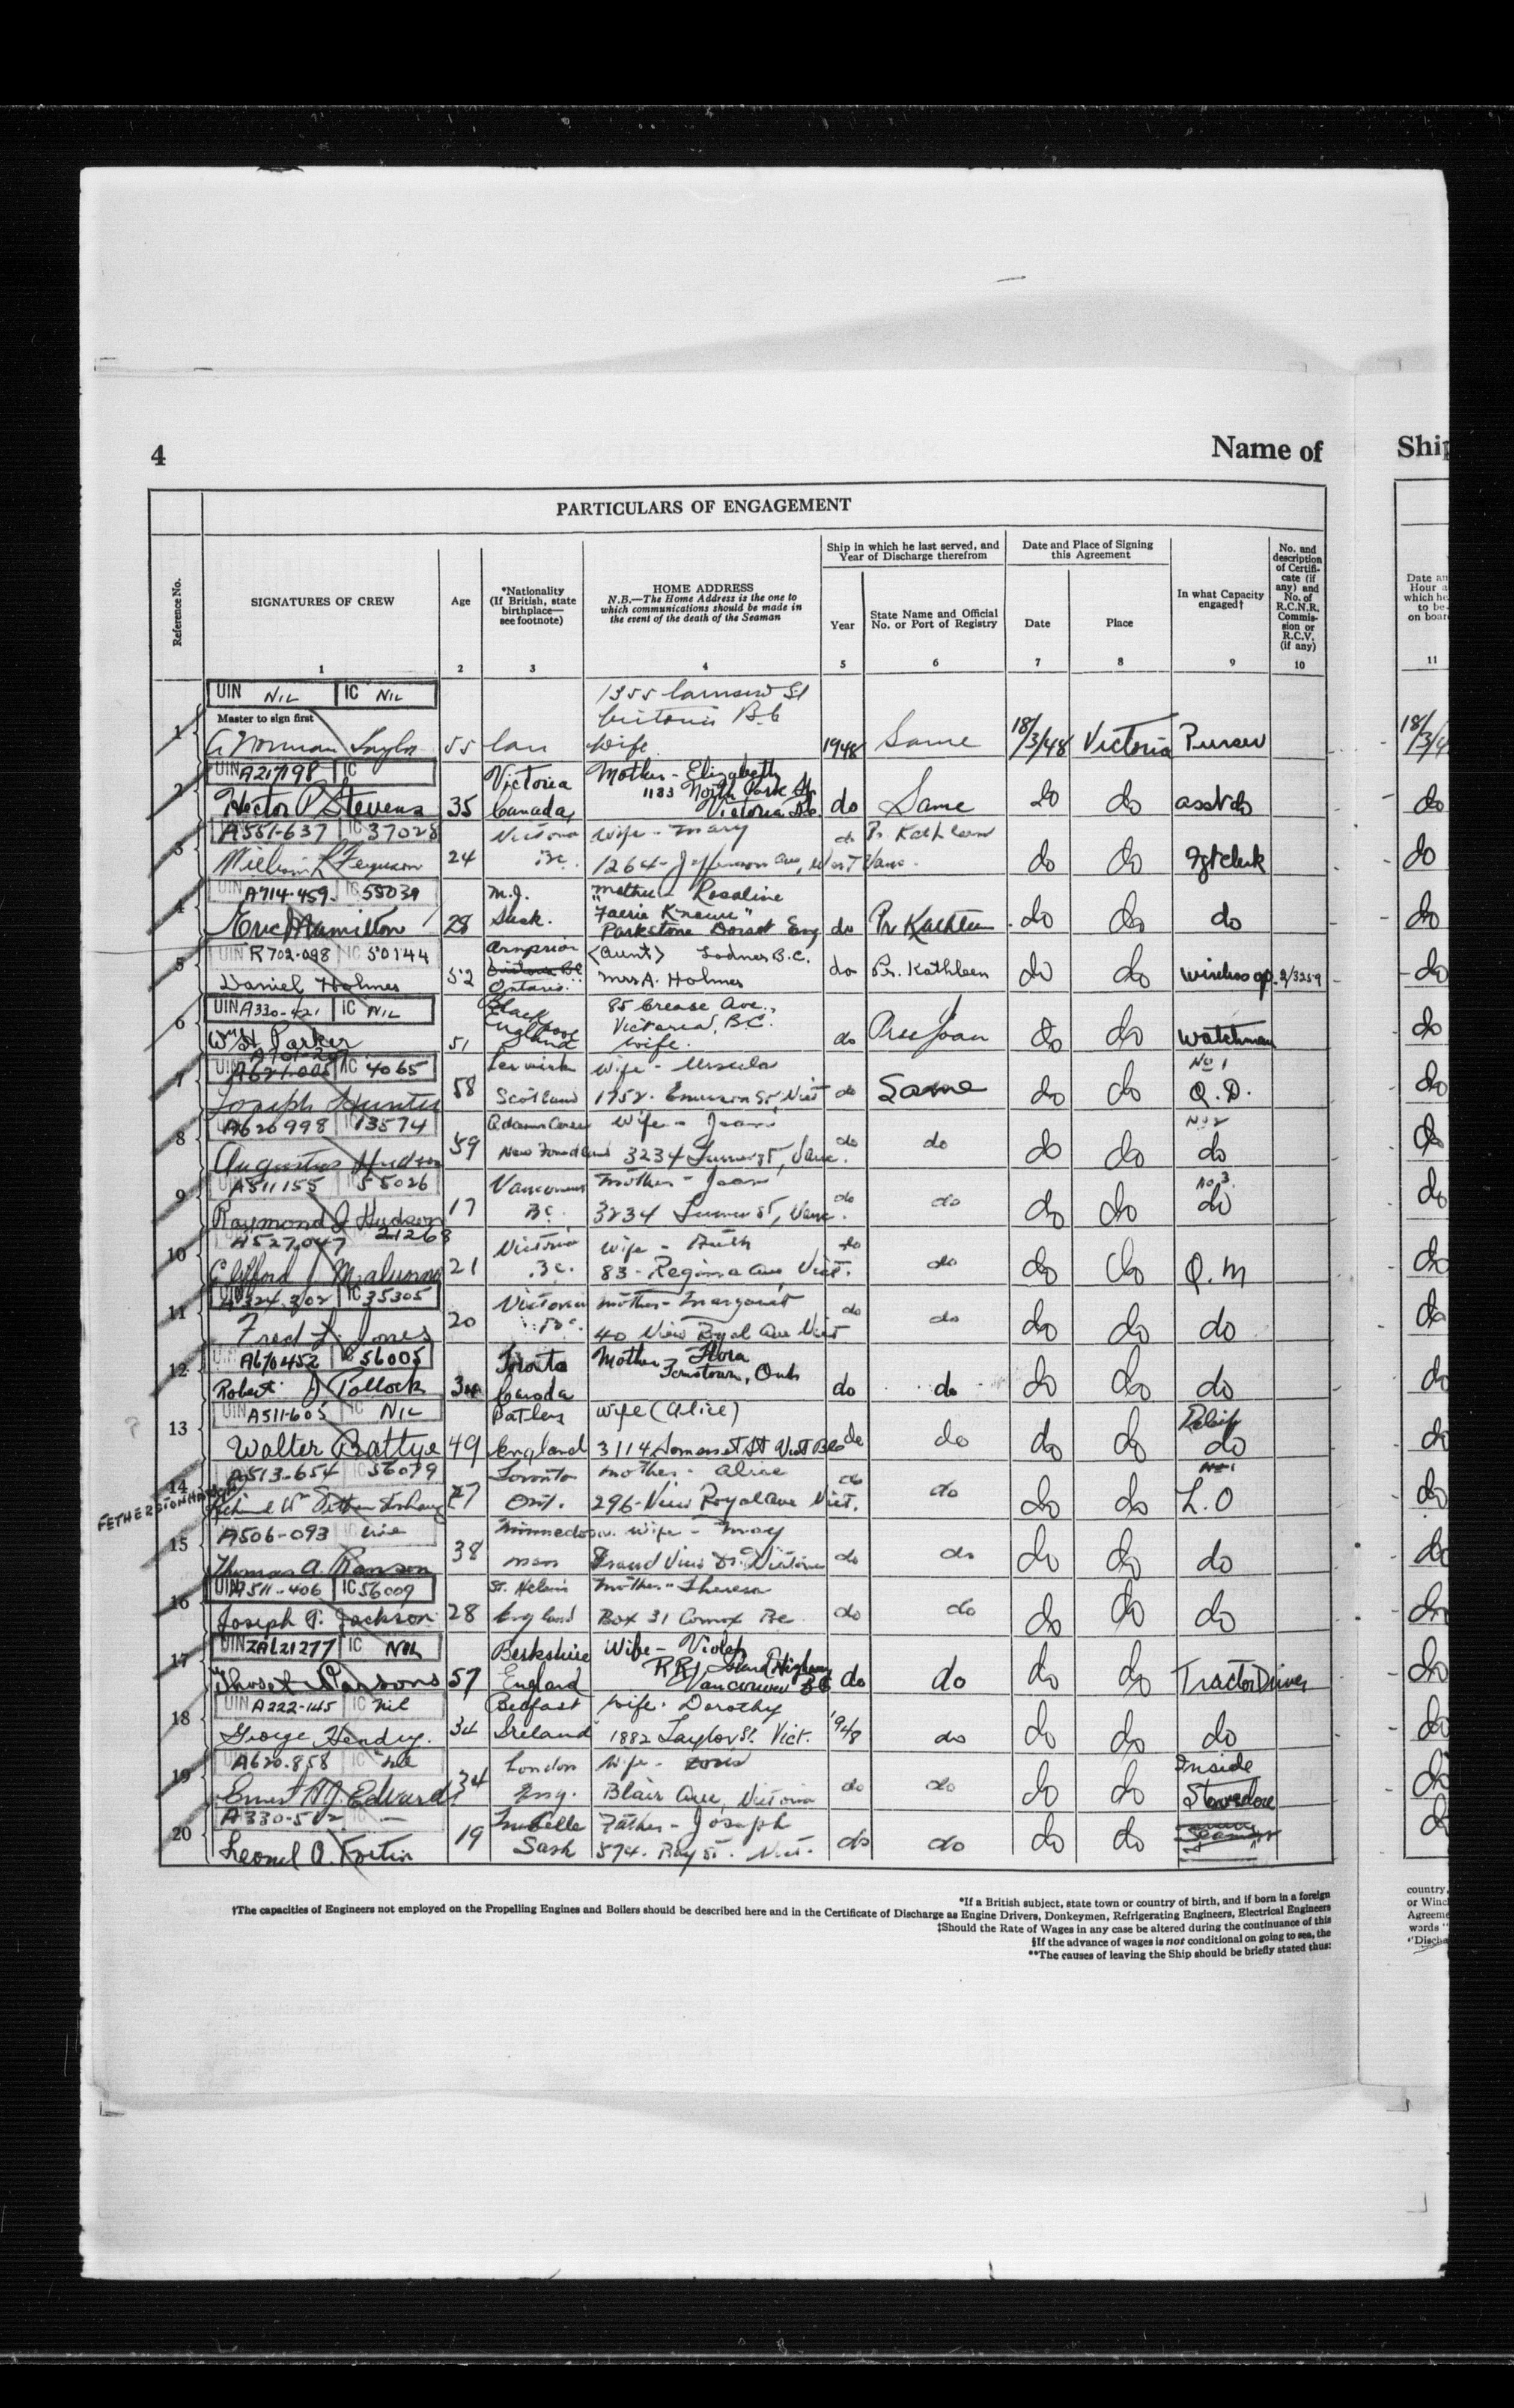 4
Name of
Ship
PARTICULARS OF ENGAGEMENT
Reference No.
SIGNATURES OF CREW
1
Age
2
*Nationality
(If British, state
birthplace—
see footnote)
3
HOME ADDRESS
N.B.—The Home Address is the one to
which communications should be made in
the event of the death of the Seaman
4
Ship in which he last served, and
Year of Discharge therefrom
Year
5
State Name and Official
No. or Port of Registry
6
Date and Place of Signing
this Agreement
Date
7
Place
8
In what Capacity
engaged†
9
No. and
description
of Certifi-
cate (if
any) and
No. of
R.C.N.R.
Commis-
sion or
R.C.V.
(if any)
10
11
UIN NIL IC NIL
Master to sign first
1355 St
B.C
1 Norman Taylor 55 Can Wife 1948 Same 18/3/48 Victoria Purser
UIN A217198 IC
Victoria Mother - Elizabeth
1183 North Park St
2 Hector P Stevens 35 Canada Victoria do Same do do asst do
A551-637 IC 37028
Victoria Wife - Mary do Pr. Kathleen
3 William R Ferguson 24 BC. 1264 - Jefferson Ave, West Vanc. do do Fgt clerk
UIN A714-459 IC 55039
Mother - Rosaline
"Faerie Knowe"
4 Eric Hamilton 28 Sask. Parkstone Dorset Eng do Pr Kathleen do do do
UIN R702-098 IC 50144
Arnprior (Aunt) Ladner B.C.
5 Daniel Holmes 52 Ontario Mrs A. Holmes do Pr. Kathleen do do wireless op. 2/3259
UIN A330-421 IC NIL
Black 85 Crease Ave.,
Victoria, B.C.
6 Wm H Parker 51 England Wife. do do do Watchman
UIN A621.005 IC 4065
Lerwick Wife - Ursula No 1
7 Joseph Hunter 58 Scotland Vict do Same do do Q.D.
A620998 IC 13574
Wife - Jean No 2
8 Augustus Hudson 59 New Foundland 3234 St, Vanc. do do do do do
A511155 IC 55026
Vancouver Mother - Jean No 3.
9 Raymond J Hudson 17 BC. 3234 St, Vanc. do do do do do
A527.047 21268
Victoria Wife - Ruth
10 Clifford 21 BC. 83 - Regina Ave Vict. do do do do Q.M
A324.302 IC 35305
Victoria Mother - Margaret
11 Fred L Jones 20 BC. 40 View Royal Ave Vict do do do do do
UIN A610452 IC 56005
Toronto Mother Flora
12 Robert J Pollock 34 Canada Ont do do do do do
UIN A511-605 IC NIL
Wife (Alice) Relief
13 Walter Battye 49 England 3114 Somerset St Vict BC do do do do do
A513-654 IC 56079
Toronto Mother - Alice
14 27 Ont. 296 - View Royal Ave Vict. do do do do L.O
A506-093
Minnedosa Wife - May
15 Thomas A. Ranson 38 Man Grand View Dr. Victoria do do do do do
UIN A511-406 IC 56009
St. Helens Mother - Theresa
16 Joseph P. Jackson 28 England Box 31 Comox BC. do do do do do
UIN ZAL21277 IC NIL
Berkshire Wife - Violet
RR1 Island Highway
17 Parsons 57 England Vancouver BC do do do do Tractor Driver
UIN A222-145 IC Nil
Belfast Wife. Dorothy
18 George Hendry. 34 Ireland 1882 Taylor St. Vict. 1948 do do do do
A620.858 IC Nil
London Wife - Inside
19 Ernest Edwards 34 Eng. Blair Ave, Victoria do do do do Stevedore
A330-502 IC —
Father - Joseph
20 Leonel A. Fortin 19 Sask 574 - Bay St. Vict. do do do do Seaman
*If a British subject, state town or country of birth, and if born in a foreign
†The capacities of Engineers not employed on the Propelling Engines and Boilers should be described here and in the Certificate of Discharge as Engine Drivers, Donkeymen, Refrigerating Engineers, Electrical Engineers
‡Should the Rate of Wages in any case be altered during the continuance of this
§If the advance of wages is not conditional on going to sea, the
**The causes of leaving the Ship should be briefly stated thus: